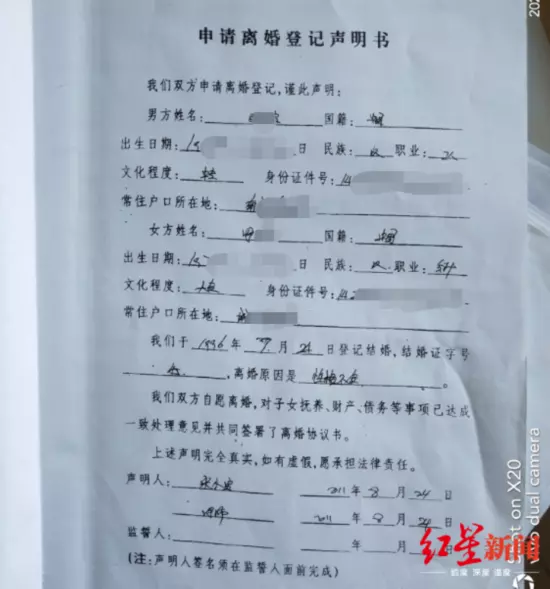 申请离婚登记声明书
我们双方申请离婚登记,谨此声明:
男方姓名: 国籍: 中国
出生日期: 19 日 民族: 汉 职业:
文化程度: 身份证件号: 14
常住户口所在地:
女方姓名: 国籍: 中国
出生日期: 19 日 民族: 汉 职业:
文化程度: 大专 身份证件号: 142
常住户口所在地:
我们于 1996 年 7 月 24 日登记结婚,结婚证字号
,离婚原因是 性格不合 。
我们双方自愿离婚,对子女抚养、财产、债务等事项已达成
一致处理意见并共同签署了离婚协议书。
上述声明完全真实,如有虚假,愿承担法律责任。
声明人: 2011 年 8 月 24 日
2011 年 8 月 24 日
监誓人: 年 月 日
(注:声明人签名须在监誓人面前完成)
红星新闻
锐度 深度 温度
Shot on X20
vivo dual camera
202